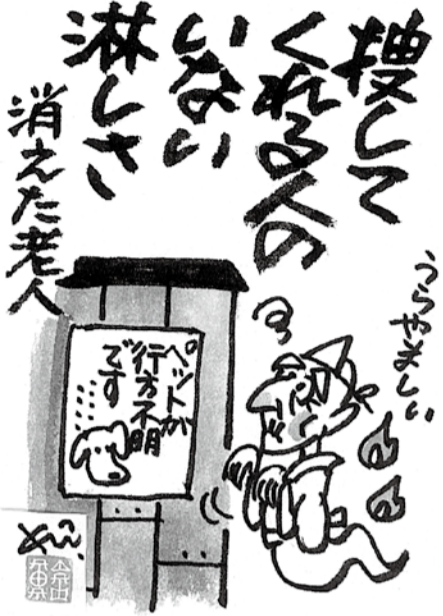 捜して
くれる人の
いない
淋しさ
消えた老人
うらやましい
ペットが
行方不明
です